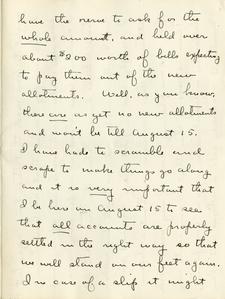 have the nerve to ask for the
whole amount, and held over
about $200 worth of bills expecting
to pay them out of the new
allotments. Well, as you know,
there are as yet no new allotments
and won't be till August 15.
I have had to scramble and
scrape to make things go along
and it is very important that
I be here on August 15 to see
that all accounts are properly
settled in the right way so that
we will stand on our feet again.
In case of a slip it might